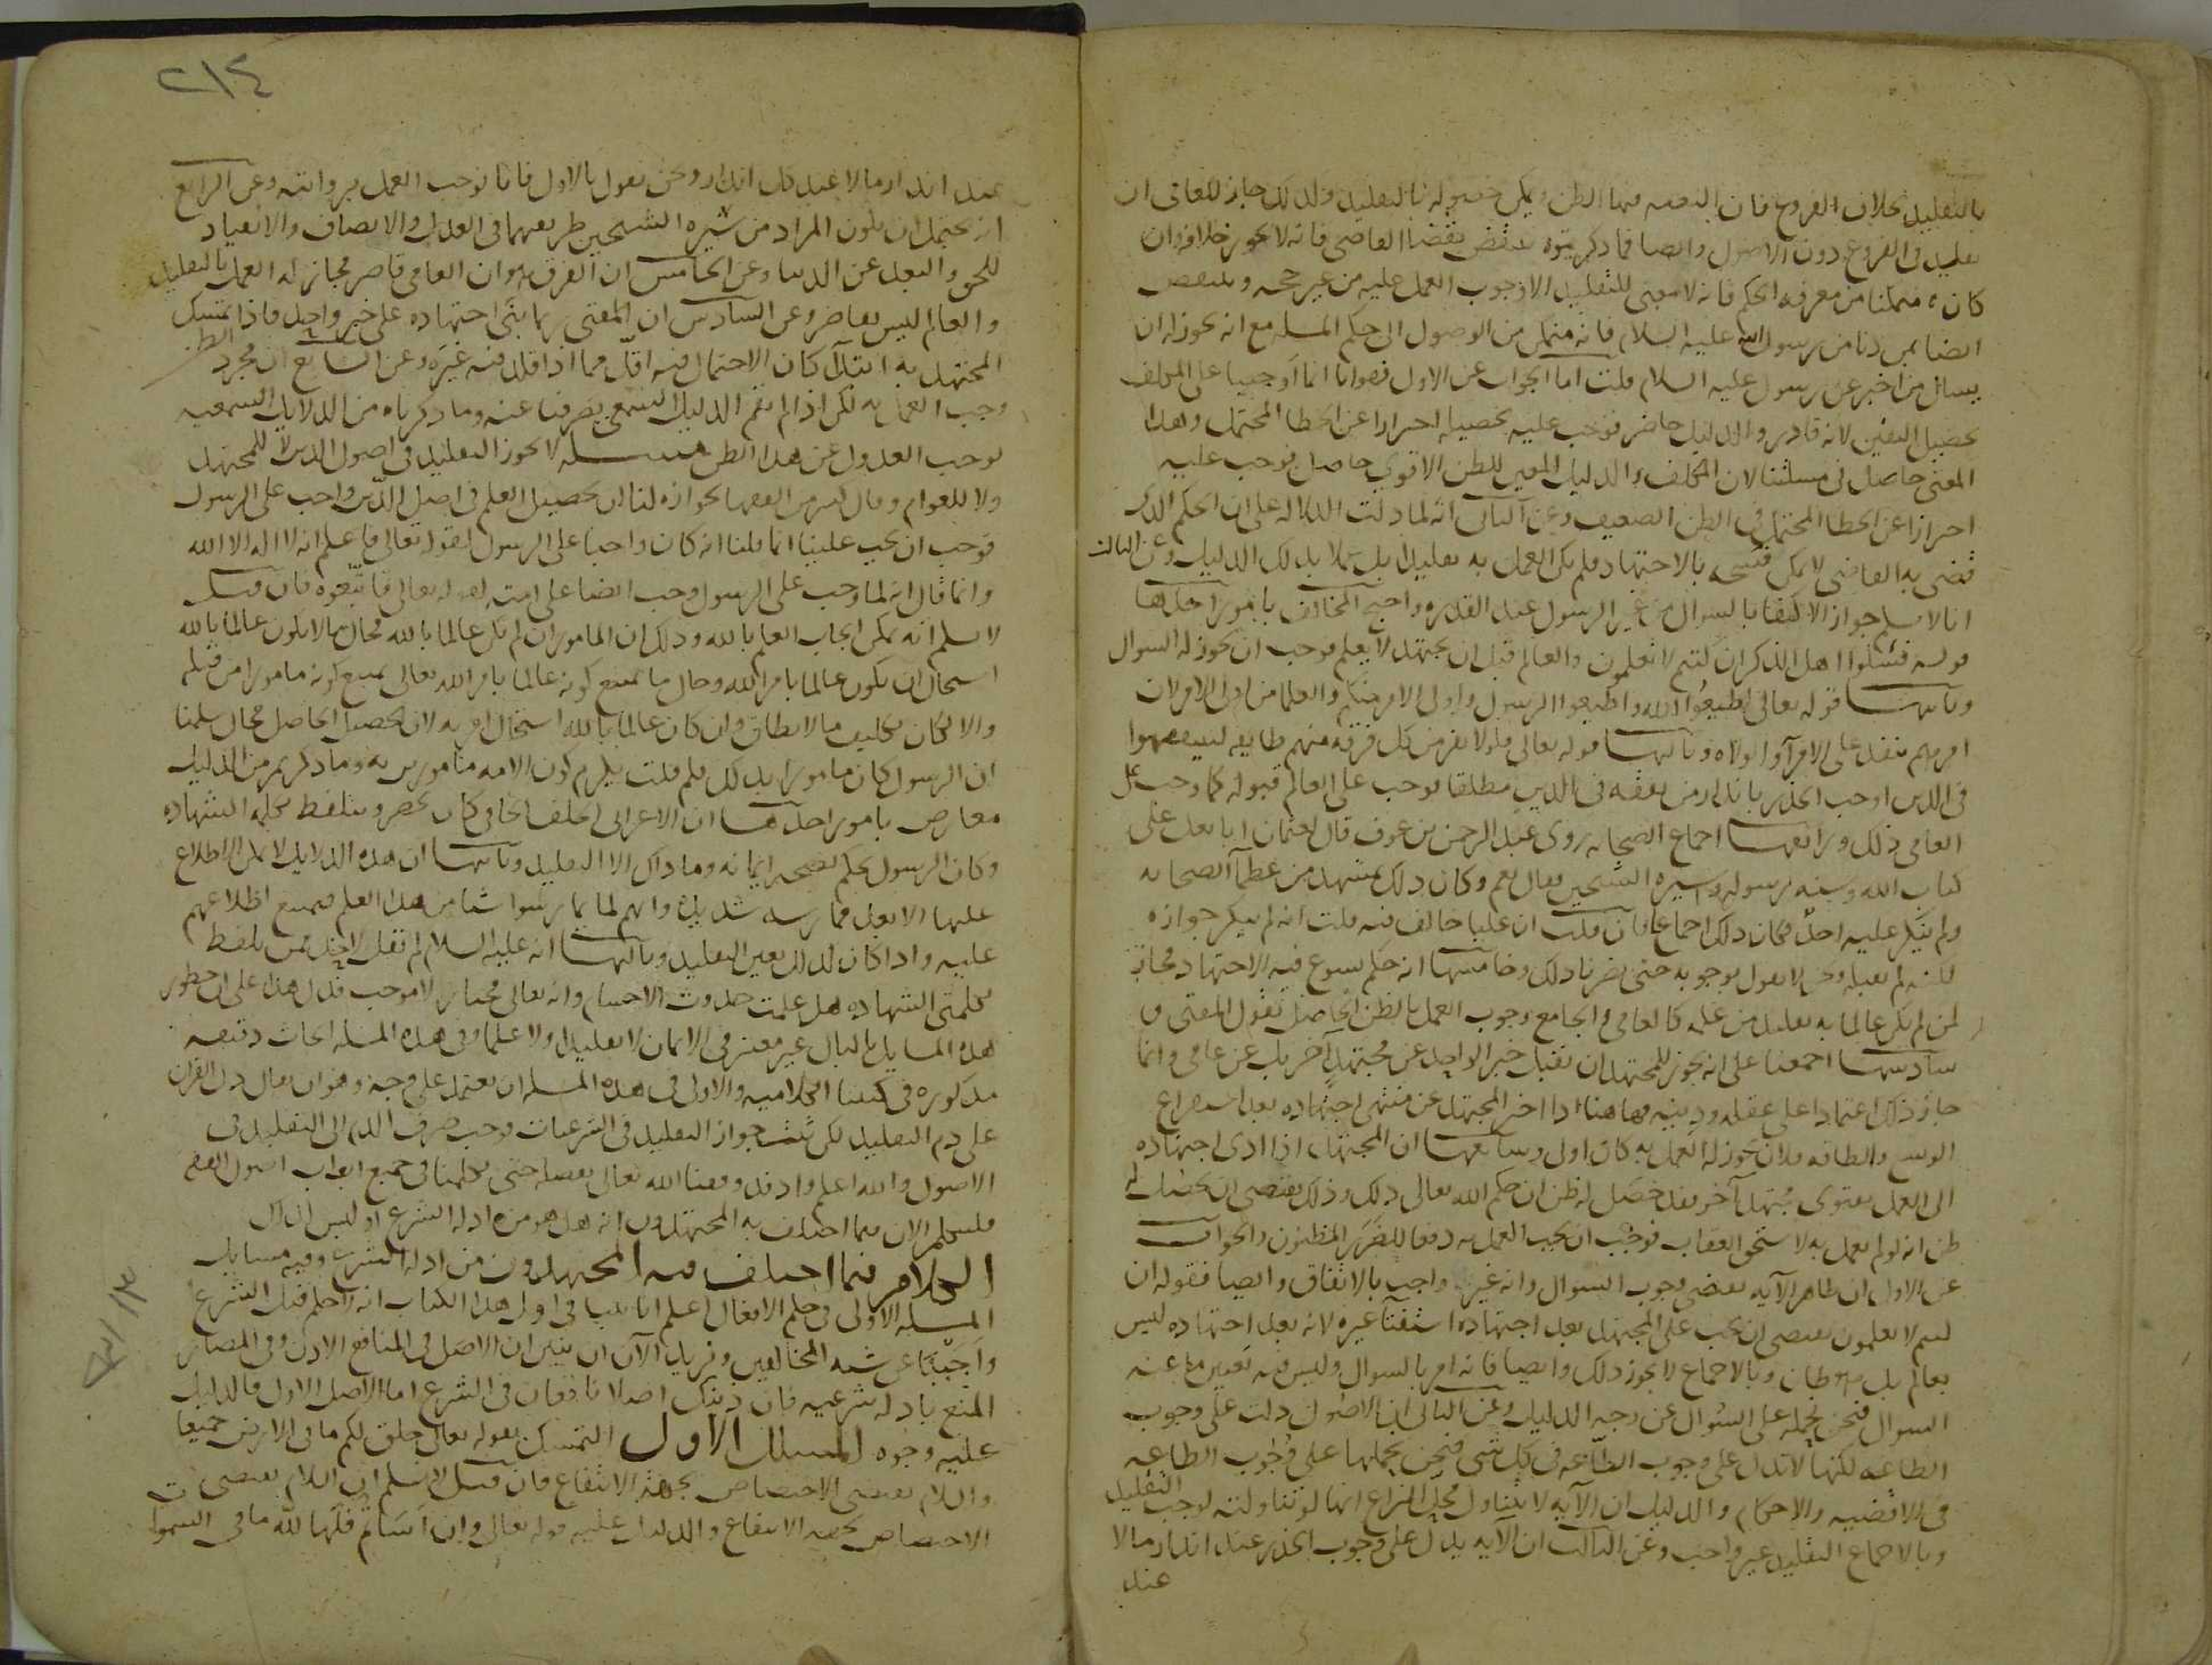 بالتقليد بخلاف الفروع فان المقصد منها الظن ويمكن حصوله بالتقليد ولذلك جاز للعامى ان
تقليد فى الفروع دون الاصول وايضا فما ذكرتموه ينتقض بقضا القاضى فانه لا يجوز خلافه وان
كان متمكنا من معرفة الحكم فانه لا معنى للتقليد الا وجوب العمل عليه من غير حجه وينتقض
ايضا بمن دنا من رسول الله عليه السلام فانه متمكن من الوصول الى حكم المسله مع انه يجوز له ان
يسال من اخبر عن رسول عليه السلام قلت اما الجواب عن الاول فهو انا انما اوجبنا على المكلف
تحصيل اليقين لانه قادر والدليل حاضر فوجب عليه تحصيله احترازا عن الخطا المحتمل وهذا
المعنى حاصل فى مسلتنا لان المكلف والدليل المعين للظن الاقوى حاصل فوجب عليه
احترازا عن الخطا المحتمل فى الظن الضعيف وعن الثانى انه لما دلت الدلاله على ان الحكم الذى
قضى به القاضى لا يمكن فسخه بالاجتهاد فلم يكن العمل به تقليدا بل عملا بذلك الدليل وعن الثالث
انا لا نسلم جواز الاكتفا بالسوال من غير الرسول عند القدره واحتج المخالف بامور احدها
قوله فسئلوا اهل الذكر ان كنتم لا تعلمون والعالم قبل ان يجتهد لا يعلم فوجب ان يجوز له السوال
وثانيها قوله تعالى اطيعوا الله واطيعوا الرسول واولى الامر منكم والعلما من اولى الامر لان
امرهم ينفذ على الامرآ والولاه وثالثها قوله تعالى فلولا نفر من كل فرقه منهم طايفه ليتفقهوا
فى الدين اوجب الحذر بانذار من تفقه فى الدين مطلقا فوجب على العالم قبوله كما وجب على
العامى ذلك ورابعها اجماع الصحابه روى عبد الرحمن بن عوف قال لعثمان ابايعك على
كتاب الله وسنه رسوله وسيره الشيخين فقال نعم وكان ذلك بمشهد من عظمآ الصحابه
ولم ينكر عليه احد فكان ذلك اجماعا فان قلت ان عليا خالف فيه قلت انه لم ينكر جوازه
لكنه لم يقبله ونحن لا نقول بوجوبه حتى يضرنا ذلك وخامسها انه حكم يسوغ فيه الاجتهاد فجاز
لمن لم يكن عالما به تقليد من علمه كالعامى والجامع وجوب العمل بالظن الحاصل بقول المفتى و
سادسها اجمعنا على انه يجوز للمجتهد ان يقبل خبر الواحد عن مجتهد آخر بل عن عامى وانما
جاز ذلك اعتمادا على عقله ودينه فهاهنا اذا اخبر المجتهد عن منتهى اجتهاده بعد استفراغ
الوسع والطاقه فلان يجوز له العمل به كان اولى وسابعها ان المجتهد اذا ادى اجتهاده
الى العمل بفتوى مجتهد آخر فقد حصل له ظن ان حكم الله تعالى ذلك وذلك يقتضى ان يحصل له
ظن انه لو لم يعمل به لاستحق العقاب فوجب ان يجب العمل به دفعا للضرر المظنون والجواب
عن الاول ان ظاهر الآيه يقتضى وجوب السوال وانه غير واجب بالاتفاق وايضا فقوله ان
كنتم لا تعلمون يقتضى ان يجب على المجتهد بعد اجتهاده استفتآ غيره لانه بعد اجتهاده ليس
بعالم بل هو ظان وبالاجماع لا يجوز ذلك وايضا فانه امر بالسوال وليس فيه تعيين ما عنه
السوال فنحن نحمله على السؤال عن وجه الدليل وعن الثانى ان الاصول دلت على وجوب
الطاعه لكنها لا تدل على وجوب الطاعه فى كل شى فنحن نحملها على وجوب الطاعه
فى الاقضيه والاحكام والدليل ان الآيه لا يتناول محل النزاع انها لو تناولته لوجب التقليد
وبالاجماع التقليد غير واجب وعن الثالث ان الآيه يدل على وجوب الحذر عند انذار ما لا
عند
٢١٤
عند انذار ما لا عند كل انذار ونحن نقول بالاول فانا نوجب العمل بروايته وعن الرابع
انه يحتمل ان يكون المراد من سيره الشيخين طريقهما فى العدل والانصاف والانقياد
للحق والبعد عن الدنيا وعن الخامس ان الفرق هو ان العامى قاصر فجاز له العمل بالتقليد
والعالم ليس بقاصر وعن السادس ان المفتى ربما بنى اجتهاده على خبر واحد فاذا تمسك
المجتهد به ابتدآ كان الاحتمال فيه اقل مما اذا قلد فيه غيره وعن السابع ان مجرد الظن
وجب العمل به لكن اذا لم يقم الدليل السمعى يصرفنا عنه وما ذكرناه من الدلايل السمعيه
يوجب العدول عن هذا الظن مسله لا يجوز التقليد فى اصول الدين لا للمجتهد
ولا للعوام وقال كثير من الفقها بجوازه لنا ان تحصيل العلم فى اصل الدين واجب على الرسول
فوجب ان يجب علينا انما قلنا انه كان واجبا على الرسول لقوله تعالى فاعلم انه لا اله الا الله
وانما قال انه لما وجب على الرسول وجب ايضا على امته لقوله تعالى فاتبعوه فان قيل
لا نسلم انه يمكن ايجاب العلم بالله وذلك ان المامور ان لم يكن عالما بالله فحال ما لا يكون عالما بالله
استحال ان يكون عالما بامر الله وحال ما يمتنع كونه عالما بامر الله تعالى يمتنع كونه مامورا من قبله
والا لكان تكليف ما لا يطاق وان كان عالما بالله استحال امره به لان تحصيل الحاصل محال سلمنا
ان الرسول كان مامورا بذلك فلم قلت يلزم كون الامه مامورين به وما ذكرتم من الدليل
معارض بامور احدها ان الاعرابى الجلف الجافى كان يحضر ويتلفظ بكلمه الشهاده
وكان الرسول يحكم بصحه ايمانه وما ذاك الا التقليد وثانيها ان هذه الدلايل لا يمكن الاطلاع
عليها الا بعد ممارسه شديده وانهم لما لم يمارسوا شيا من هذا العلم فيمتنع اطلاعهم
عليه واذا كان كذلك تعين التقليد وثالثها انه عليه السلام لم يقل لاحد ممن تلفظ
بكلمتى الشهاده هل علمت حدوث الاجسام وانه تعالى مختار لا موجب فدل هذا على ان خطور
هذه المسايل بالبال غير معتبر فى الايمان لا تقليدا ولا علما وفى هذه المسله ابحاث دقيقه
مذكوره فى كتبنا الكلاميه والاولى فى هذه المسله ان يعتمد على وجه وهو ان يقال دل القران
على ذم التقليد لكن ثبت جواز التقليد فى الشرعيات فوجب صرف الذم الى التقليد فى
الاصول والله اعلم واذ قد وفقنا الله تعالى بفضله حتى تكلمنا فى جميع ابواب اصول الفقه
فلنتكلم الان فيما اختلف به المجتهدون انه هل هو من ادله الشرع او ليس كذلك
الكلام فيما اختلف فيه المجتهدون من ادله الشرع وفيه مسايل
المسله الاولى فى حكم الافعال اعلم انا بينا فى اول هذا الكتاب انه لا حكم قبل الشرع
واجبنا عن شبه المخالفين ونريد الآن ان نبين ان الاصل فى المنافع الاذن وفى المضار
المنع بادله شرعيه فان ذينك اصلان نافعان فى الشرع اما الاصل الاول فالدليل
عليه وجوه المسلك الاول التمسك بقوله تعالى خلق لكم ما فى الارض جميعا
واللام يقتضى الاختصاص بجهه الانتفاع فان قيل لا نسلم ان اللام يقتضى
الاختصاص بجهه الانتفاع والدليل عليه قوله تعالى وان اساتم فلها لله ما فى السموات